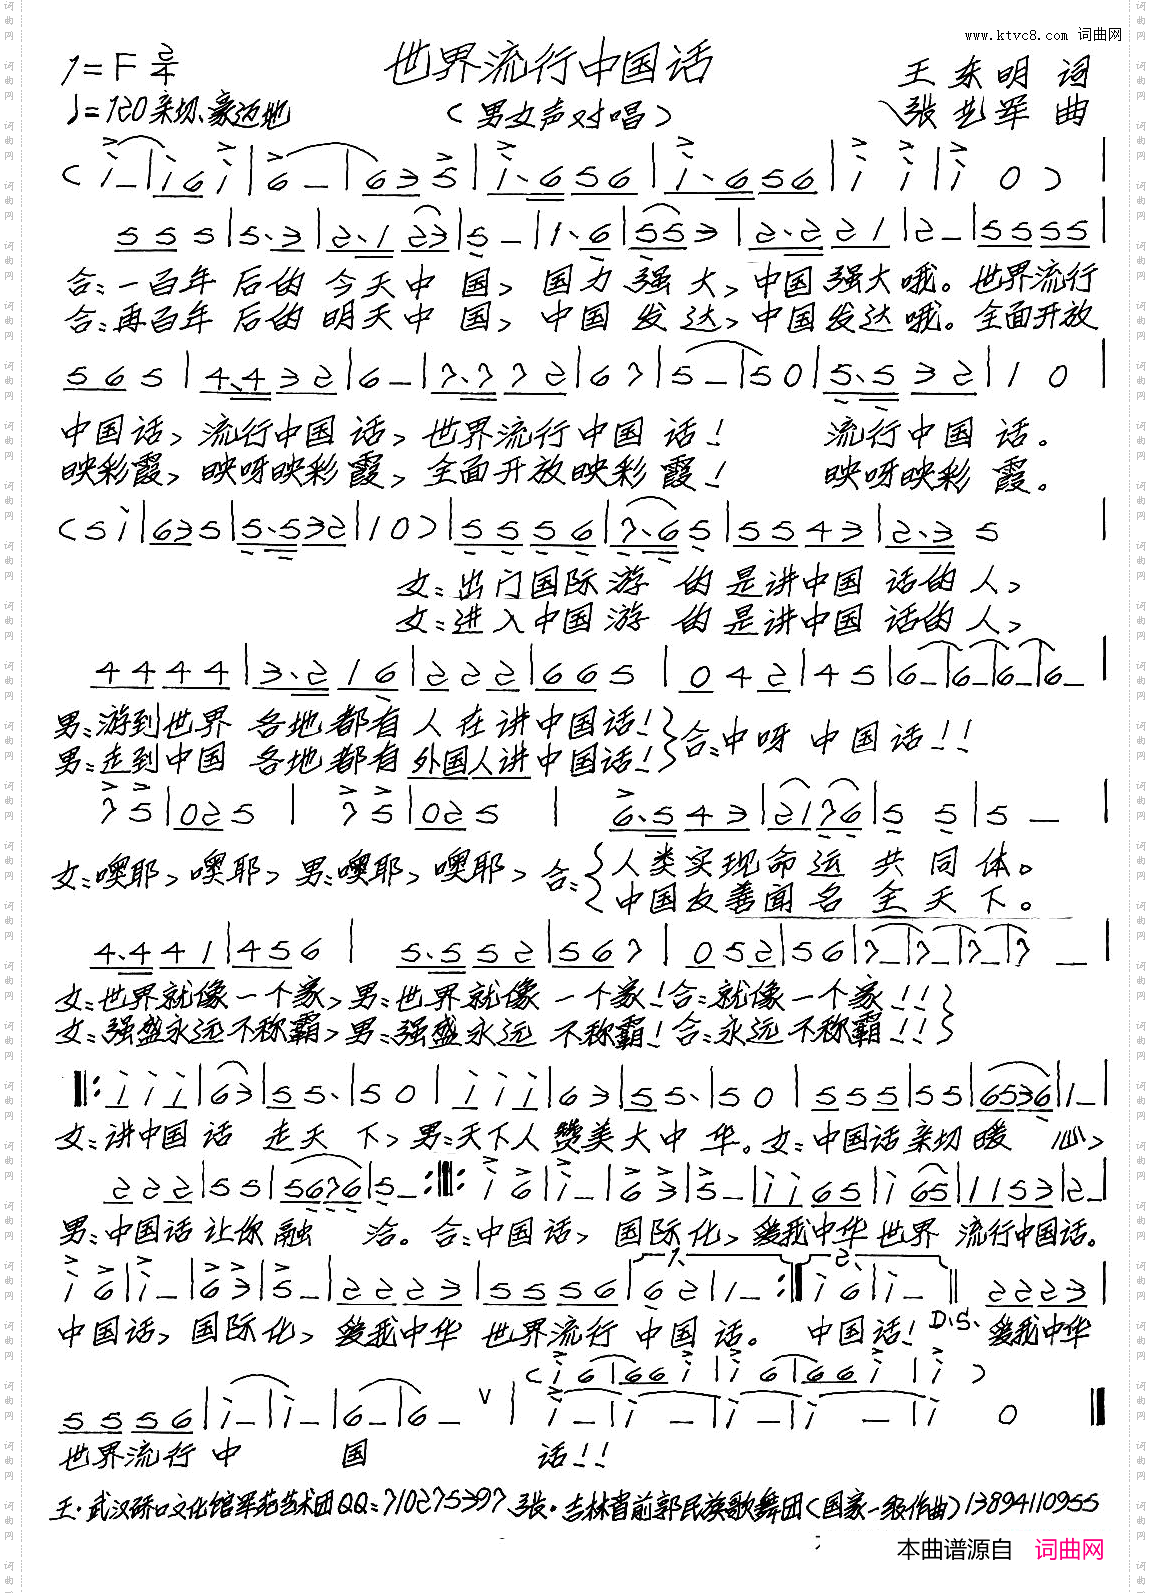 www.ktvc8.com 词曲网
1=F 2/4
世界流行中国话
王东明 词
♩=120 亲切、豪迈地
(男女声对唱)
张艺军 曲
合:一百年 后的 今天中 国, 国力 强大, 中国强大哦。世界流行
合:再百年 后的 明天中 国, 中国 发达, 中国发达哦。全面开放
中国话, 流行中国话, 世界流行中国 话! 流行中国 话。
映彩霞, 映呀映彩霞, 全面开放映彩霞! 映呀映彩 霞。
女:出门国际游 的是讲中国 话的人,
女:进入中国游 的是讲中国 话的人,
男:游到世界 各地都有人在讲中国话! 合:中呀 中国话!!
男:走到中国 各地都有外国人讲中国话!
女:噢耶, 噢耶, 男:噢耶, 噢耶, 合: 人类实现命运 共同体。
中国友善闻名 全天下。
女:世界就像一个家, 男:世界就像 一个家! 合:就像一个家!!
女:强盛永远不称霸, 男:强盛永远 不称霸! 合:永远不称霸!!
女:讲中国话 走天 下, 男:天下人赞美大中 华。女:中国话亲切暖 心,
男:中国话让你融 洽。合:中国话, 国际化, 爱我中华世界 流行中国话。
1. 2.
中国话, 国际化, 爱我中华 世界流行 中国 话。 中国话! D.S. 爱我中华
世界流行 中 国 话!!
王·武汉硚口文化馆军苑艺术团QQ:710275397、张·吉林省前郭民族歌舞团(国家一级作曲)13894110955
本曲谱源自 词曲网